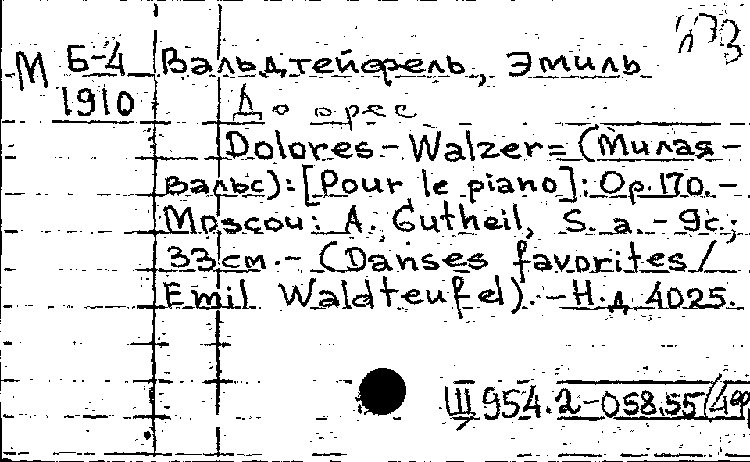 М Б-4 Вальдтейфель, Эмиль
1910 Долорес
Dolores-Walzer=(Милая-
вальс):[Pour le piano]: Op.170.-
Moscou: A. Gutheil, S. a.-9с.;
33см.-(Danses favorites/
Emil Waldteufel).-Н.д 4025.
Ш 954.2-058.55